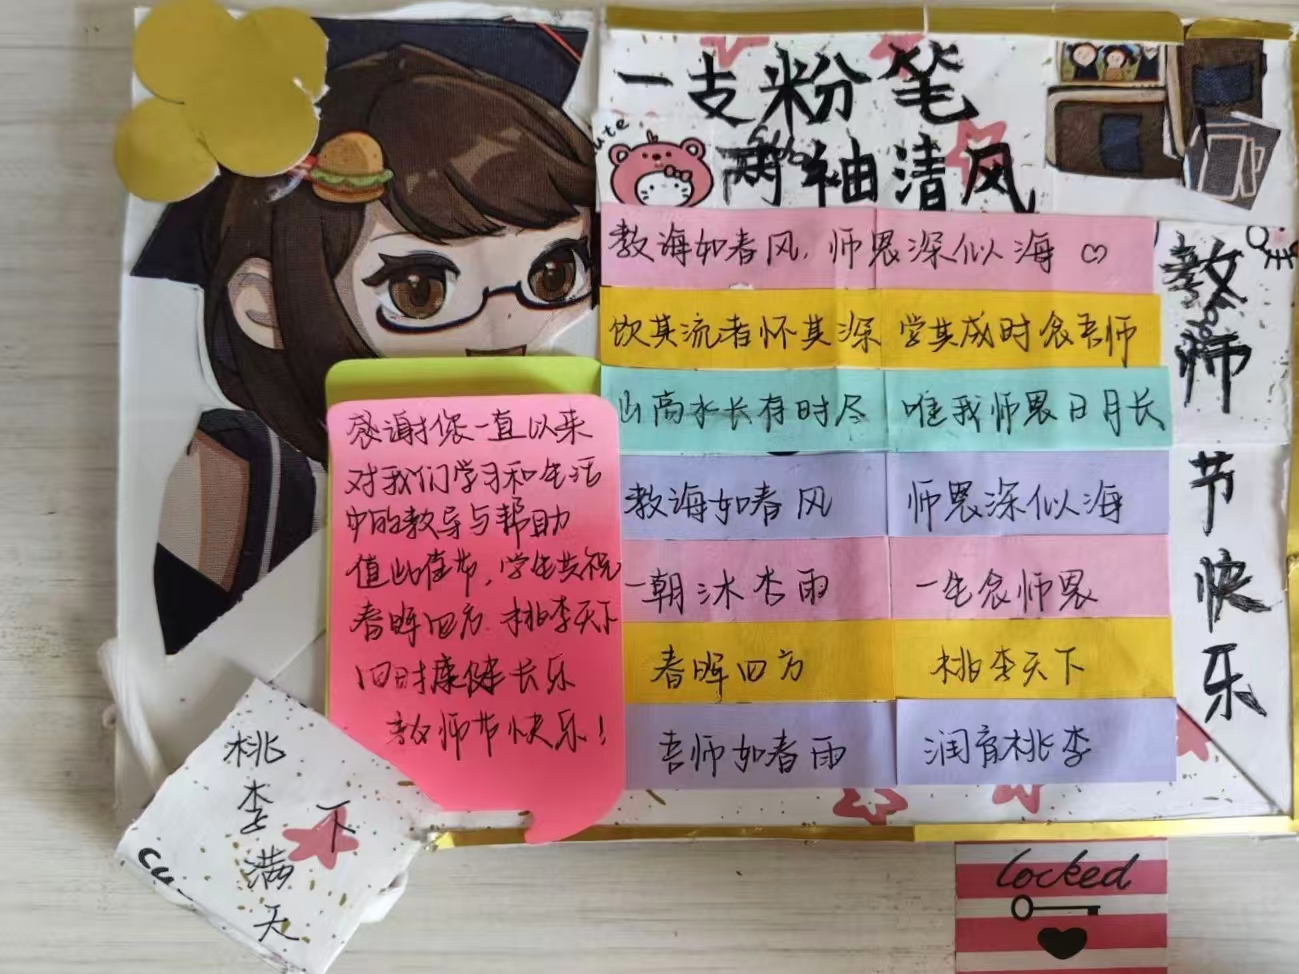 一支粉笔
两袖清风
cute
教诲如春风，师恩深似海♡
饮其流者怀其深 学其成时念吾师
山高水长有时尽 唯我师恩日月长
教诲如春风 师恩深似海
一朝沐杏雨 一生念师恩
春晖四方 桃李天下
吾师如春雨 润育桃李
教师节快乐
感谢您一直以来
对我们学习和生活
中的教导与帮助
值此佳节，学生共祝
春晖四方 桃李天下
四时康健长乐
教师节快乐！
桃李满天下
locked